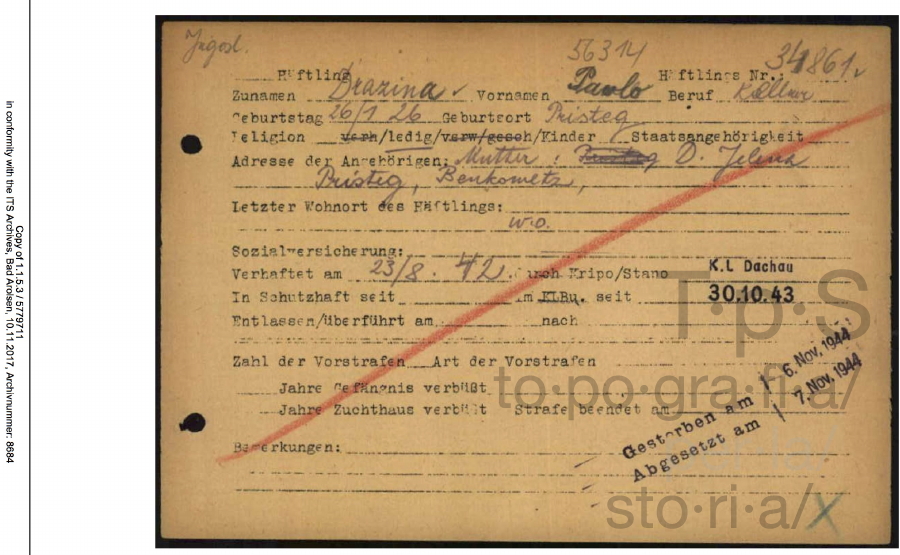 Jugosl.
56314
34861.
Häftling Häftlings Nr.:
Zunamen Drazina Vornamen Pavlo Beruf Kellner
Geburtstag 26/1 26 Geburtsort Pristeg
Religion verh/ledig/verw/gesch/Kinder Staatsangehörigkeit
Adresse der Angehörigen: Mutter: D. Jelena
Pristeg, Benkowetz,
Letzter Wohnort des Häftlings:
w.o.
Sozialversicherung:
Verhaftet am 23/8. 42 durch Kripo/Stapo K.L Dachau
In Schutzhaft seit im KLBu. seit 30.10.43
Entlassen/überführt am nach
Zahl der Vorstrafen Art der Vorstrafen
Jahre Gefängnis verbüßt
Jahre Zuchthaus verbüßt Strafe beendet am
Gestorben am 6. Nov. 1944
Abgesetzt am 7. Nov. 1944
Bemerkungen:
T·p·S
to·po·gra·fi·a/
sto·ri·a/
Copy of 1.1.5.3 / 5779711
in conformity with the ITS Archives, Bad Arolsen, 10.11.2017, Archivnummer: 8684